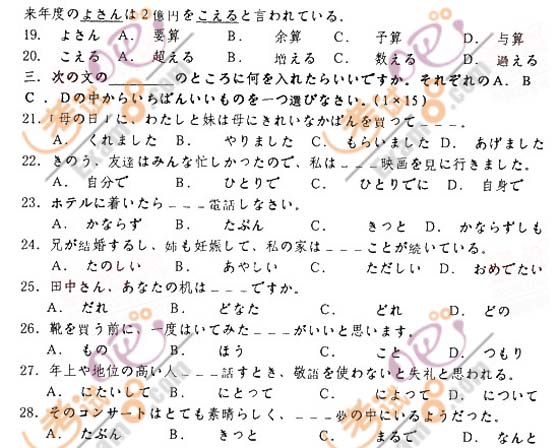 来年度のよさんは2億円をこえると言われている。
19. よさん A. 要算 B. 余算 C. 子算 D. 与算
20. こえる A. 超える B. 増える C. 数える D. 過える
三、次の文の______のところに何を入れたらいいですか。それぞれのA. B
C. Dの中からいちばんいいものを一つ選びなさい.(1×15)
21.「母の日」に、わたしと妹は母にきれいなかばんを買って___.
A. くれました B. やりました C. もらいました D. あげました
22. きのう、友達はみんな忙しかったので、私は___映画を見に行きました。
A. 自分で B. ひとりで C. ひとりでに D. 自身で
23. ホテルに着いたら___電話しなさい。
A. かならず B. たぶん C. きっと D. かならずしも
24. 兄が結婚するし、姉も妊娠して、私の家は___ことが続いている。
A. たのしい B. あやしい C. ただしい D. おめでたい
25. 田中さん、あなたの机は___ですか。
A. だれ B. どなた C. どれ D. どの
26. 靴を買う前に、一度はいてみた___がいいと思います。
A. もの B. ほう C. こと D. つもり
27. 年上や地位の高い人___話すとき、敬語を使わないと失礼と思われる。
A. にたいして B. にとって C. によって D. について
28. そのコンサートはとても素晴らしく、___夢の中にいるようだった。
A. たぶん B. きっと C. まるで D. なんと